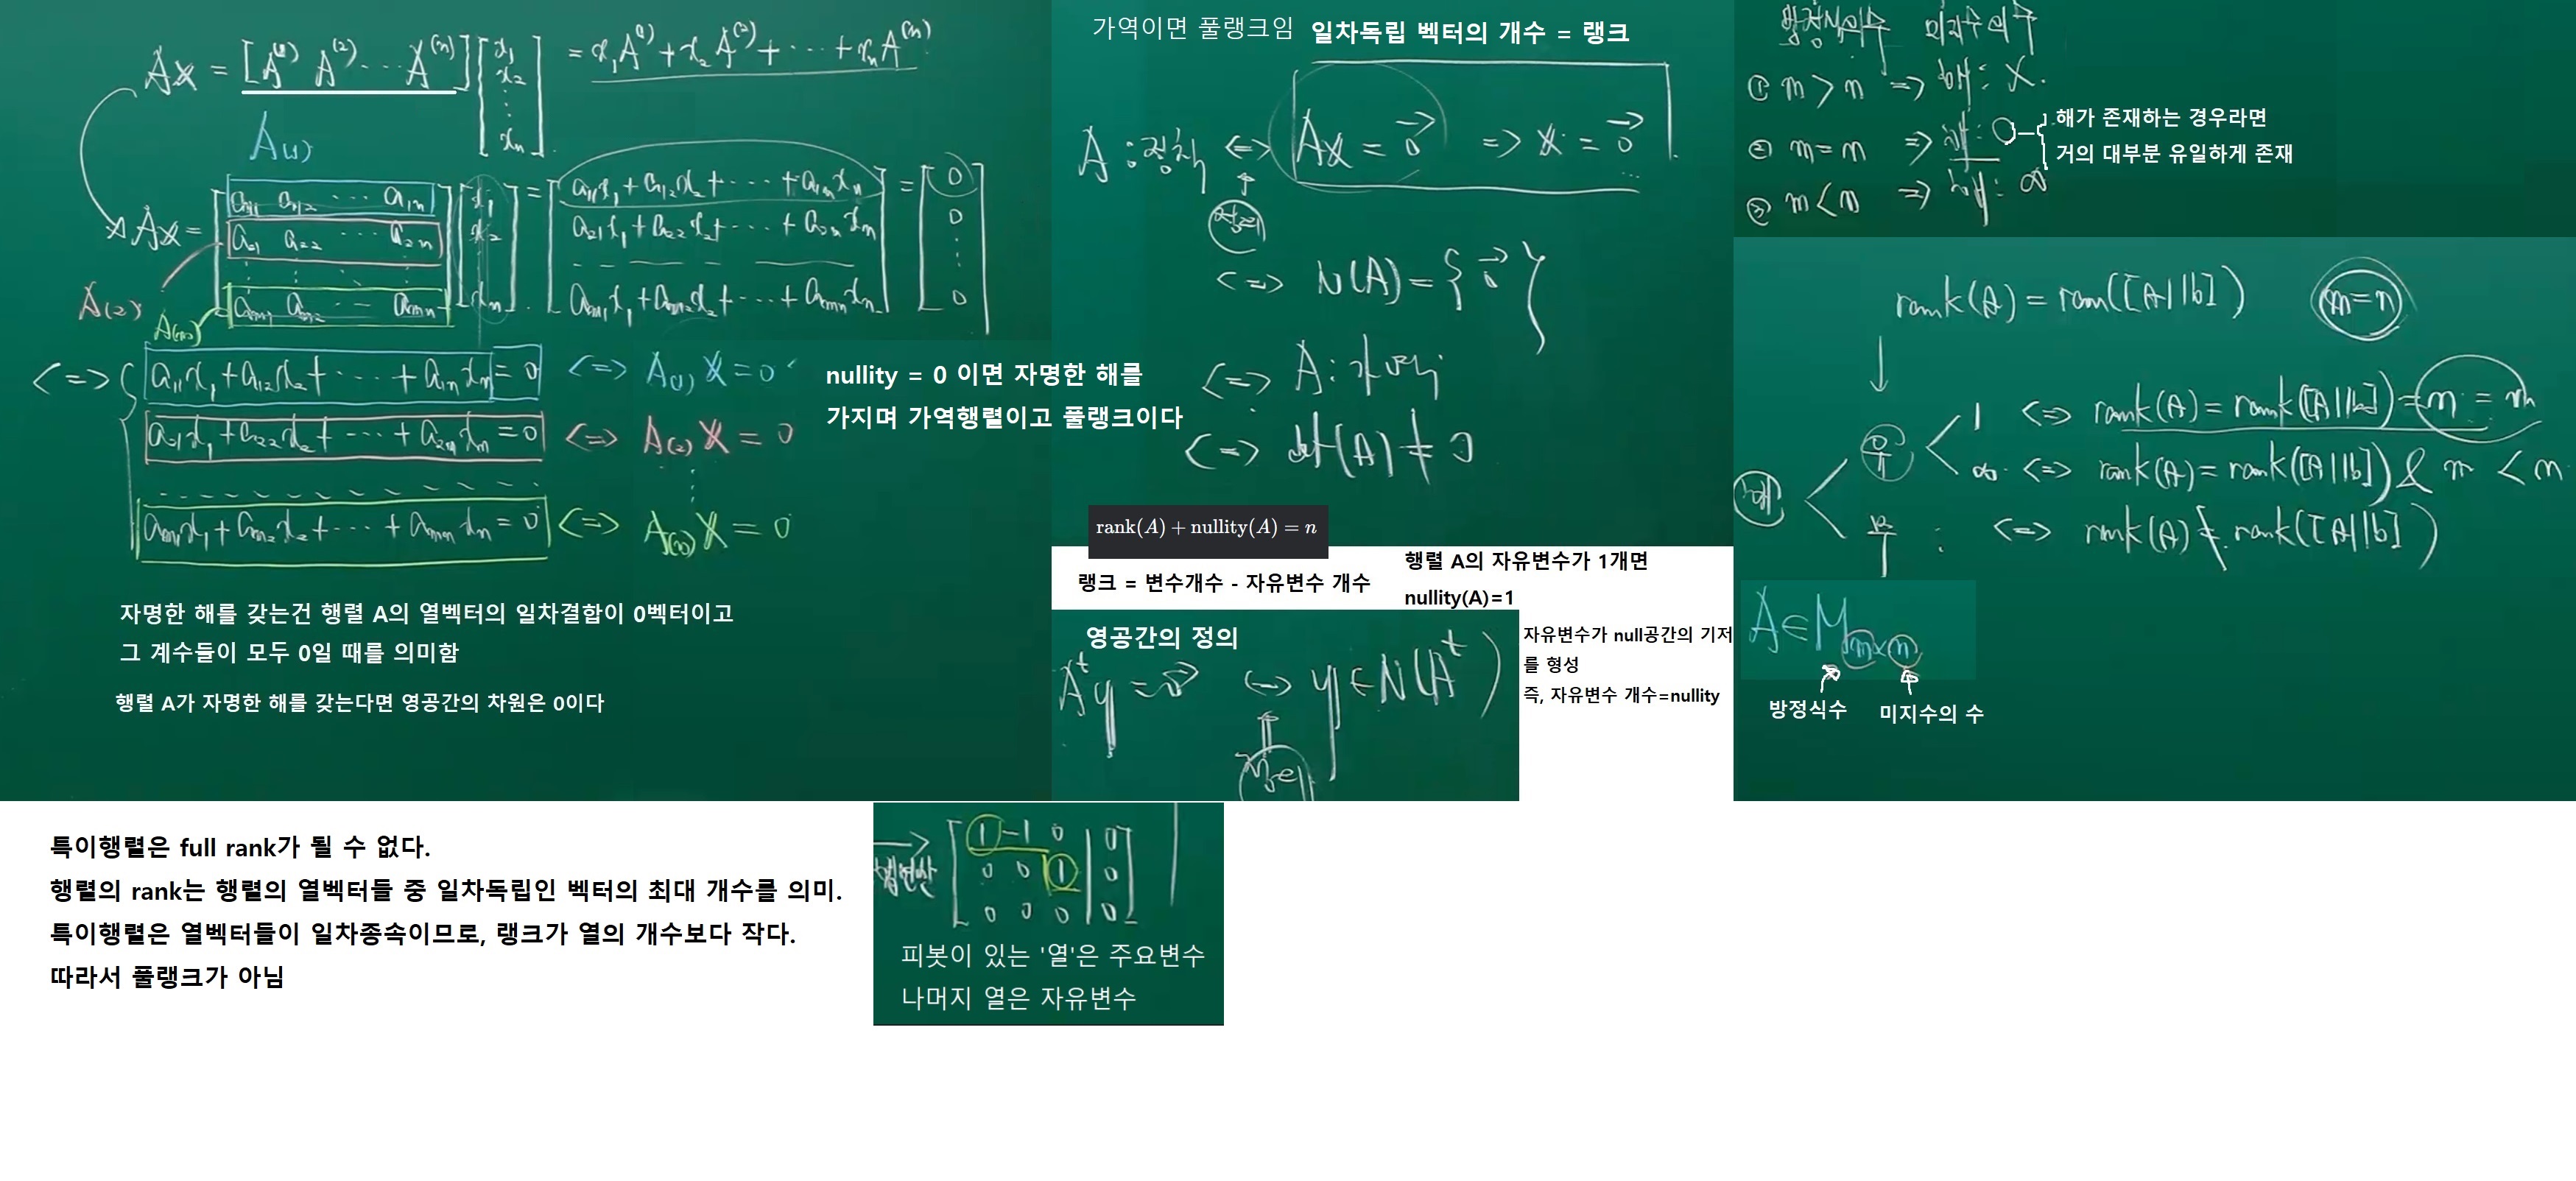 Ax = [A⁽¹⁾ A⁽²⁾ ⋯ A⁽ⁿ⁾] [x₁ x₂ ⋮ xₙ] = x₁A⁽¹⁾ + x₂A⁽²⁾ + ⋯ + xₙA⁽ⁿ⁾
A₍₁₎
Ax = [a₁₁ a₁₂ ⋯ a₁ₙ] [x₁] = [a₁₁x₁ + a₁₂x₂ + ⋯ + a₁ₙxₙ] = [0]
[a₂₁ a₂₂ ⋯ a₂ₙ] [x₂] [a₂₁x₁ + a₂₂x₂ + ⋯ + a₂ₙxₙ] [0]
[aₘ₁ aₘ₂ ⋯ aₘₙ] [xₙ] [aₘ₁x₁ + aₘ₂x₂ + ⋯ + aₘₙxₙ] [0]
A₍₂₎
A₍ₘ₎
<=> a₁₁x₁ + a₁₂x₂ + ⋯ + a₁ₙxₙ = 0 <=> A₍₁₎x = 0
a₂₁x₁ + a₂₂x₂ + ⋯ + a₂ₙxₙ = 0 <=> A₍₂₎x = 0
aₘ₁x₁ + aₘ₂x₂ + ⋯ + aₘₙxₙ = 0 <=> A₍ₘ₎x = 0
nullity = 0 이면 자명한 해를
가지며 가역행렬이고 풀랭크이다
자명한 해를 갖는건 행렬 A의 열벡터의 일차결합이 0벡터이고
그 계수들이 모두 0일 때를 의미함
행렬 A가 자명한 해를 갖는다면 영공간의 차원은 0이다
가역이면 풀랭크임 일차독립 벡터의 개수 = 랭크
A : 정칙 <=> Ax = 0⃗ => x = 0⃗
<=> N(A) = {0⃗}
<=> A : 가역
<=> det(A) ≠ 0
rank(A) + nullity(A) = n
랭크 = 변수개수 - 자유변수 개수
행렬 A의 자유변수가 1개면
nullity(A)=1
영공간의 정의
Aᵗy = 0⃗ <=> y ∈ N(Aᵗ)
정의
자유변수가 null공간의 기저
를 형성
즉, 자유변수 개수=nullity
방정식의수 미지수의수
① m > n => 해 : X.
② m = n => 해 : O
③ m < n => 해 : ∞
해가 존재하는 경우라면
거의 대부분 유일하게 존재
rank(A) = ran([A|b]) m=n
해
유
1 <=> rank(A) = rank([A|b]) = m = n
∞ <=> rank(A) = rank([A|b]) & m < n
무 : <=> rank(A) ≠ rank([A|b])
A ∈ Mₘₓₙ
방정식수 미지수의 수
특이행렬은 full rank가 될 수 없다.
행렬의 rank는 행렬의 열벡터들 중 일차독립인 벡터의 최대 개수를 의미.
특이행렬은 열벡터들이 일차종속이므로, 랭크가 열의 개수보다 작다.
따라서 풀랭크가 아님
행연산
1 -1 0 | 0
0 0 1 | 0
0 0 0 | 0
피봇이 있는 '열'은 주요변수
나머지 열은 자유변수